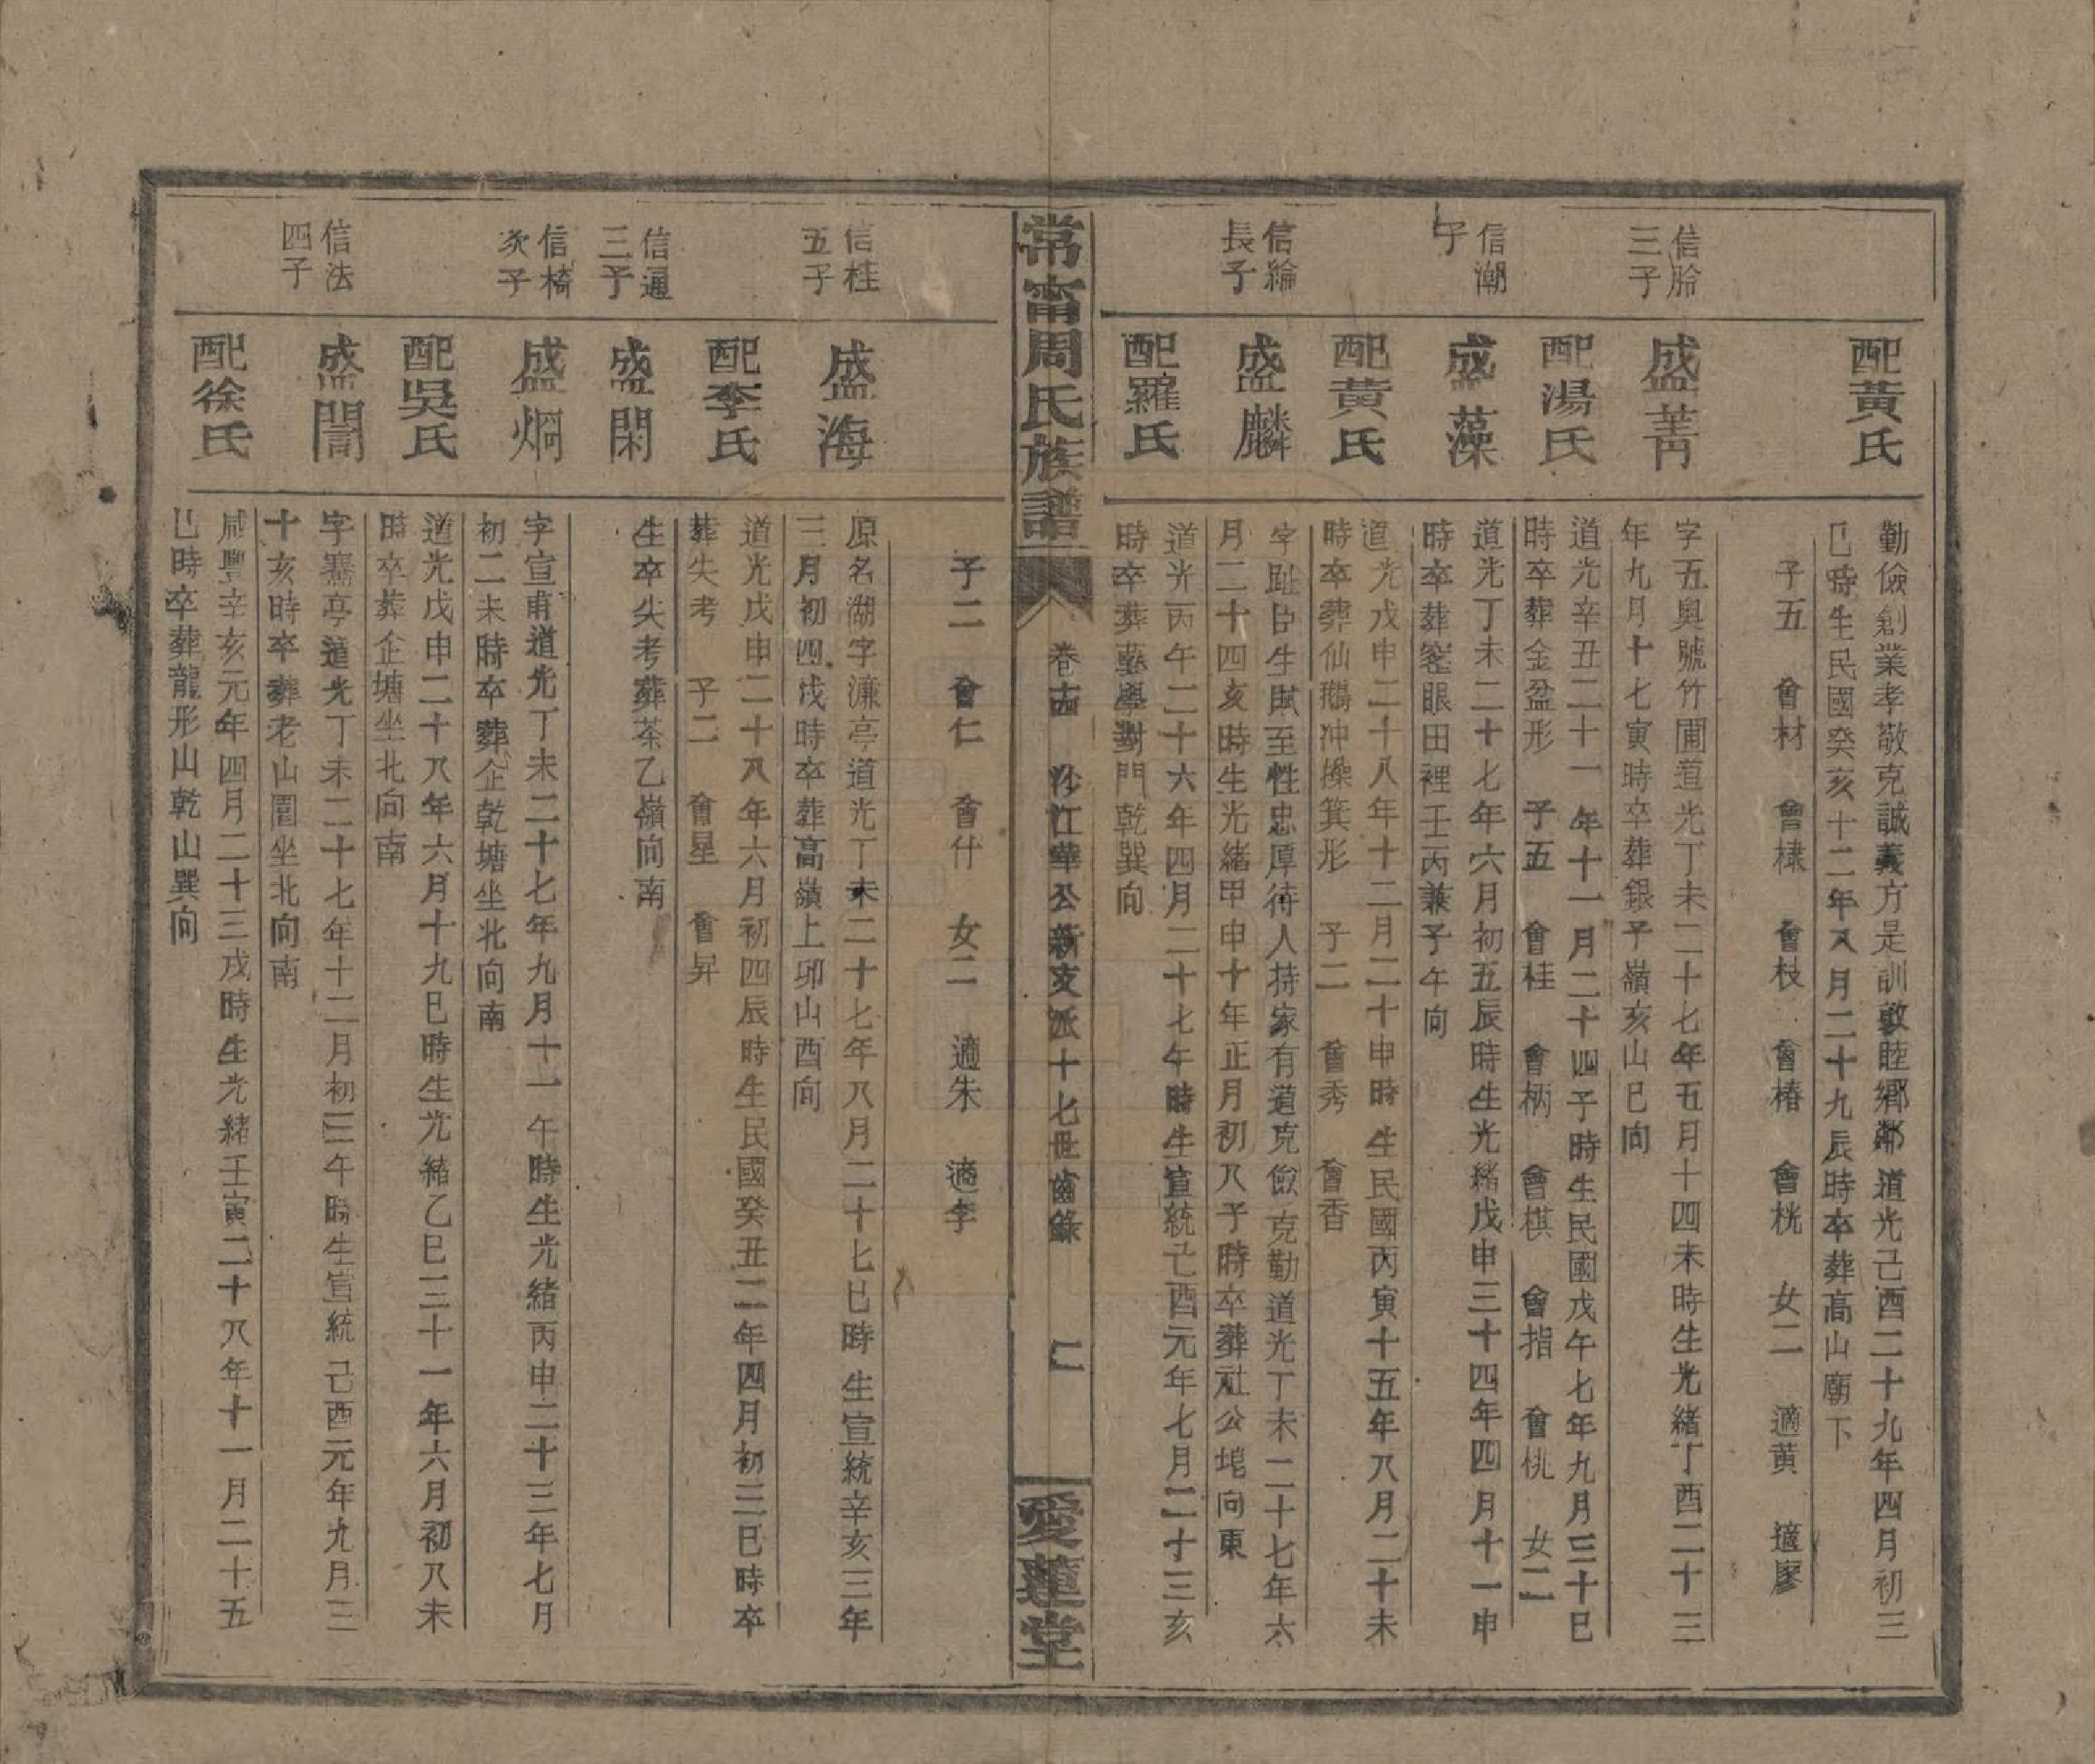 配黃氏
勤儉創業孝敬克誠義方是訓敦睦鄉鄰道光己酉二十九年四月初三
巳時生民國癸亥十二年八月二十九辰時卒葬高山廟下
子五 會材 會棣 會枝 會椿 會桄 女二 適黃 適廖
信胎
三子
盛菁
字五輿號竹圃道光丁未二十七年五月十四未時生光緒丁酉二十三
年九月十七寅時卒葬銀子嶺亥山巳向
配湯氏
道光辛丑二十一年十一月二十四子時生民國戊午七年九月三十巳
時卒葬金盆形 子五 會桂 會柄 會棋 會指 會桃 女二
信潮
子
盛藻
道光丁未二十七年六月初五辰時生光緒戊申三十四年四月十一申
時卒葬窰眼田裡壬丙兼子午向
配黃氏
道光戊申二十八年十二月二十申時生民國丙寅十五年八月二十未
時卒葬仙鵝冲操箕形 子二 會秀 會香
信綸
長子
盛麟
字趾臣生賦至性忠厚待人持家有道克儉克勤道光丁未二十七年六
月二十四亥時生光緒甲申十年正月初八子時卒葬社公塢向東
配羅氏
道光丙午二十六年四月二十七午時生宣統己酉元年七月二十三亥
時卒葬塾學對門乾巽向
常甯周氏族譜
卷十四 汾江華公新支派十七世齒錄
仁
愛蓮堂
子二 會仁 會什 女二 適朱 適李
信桂
五子
盛海
原名湖字濂亭道光丁未二十七年八月二十七巳時生宣統辛亥三年
三月初四戌時卒葬高嶺上卯山酉向
配李氏
道光戊申二十八年六月初四辰時生民國癸丑二年四月初三巳時卒
葬失考 子二 會星 會昇
信通
三子
盛閑
生卒失考葬茶乙嶺向南
信椅
次子
盛炯
字宣甫道光丁未二十七年九月十一午時生光緒丙申二十三年七月
初二未時卒葬企乾塘坐北向南
配吳氏
道光戊申二十八年六月十九巳時生光緒乙巳三十一年六月初八未
時卒葬企塘坐北向南
信法
四子
盛誾
字騫亭道光丁未二十七年十二月初三午時生宣統己酉元年九月三
十亥時卒葬老山園坐北向南
配徐氏
咸豐辛亥元年四月二十三戌時生光緒壬寅二十八年十一月二十五
巳時卒葬龍形山乾山巽向